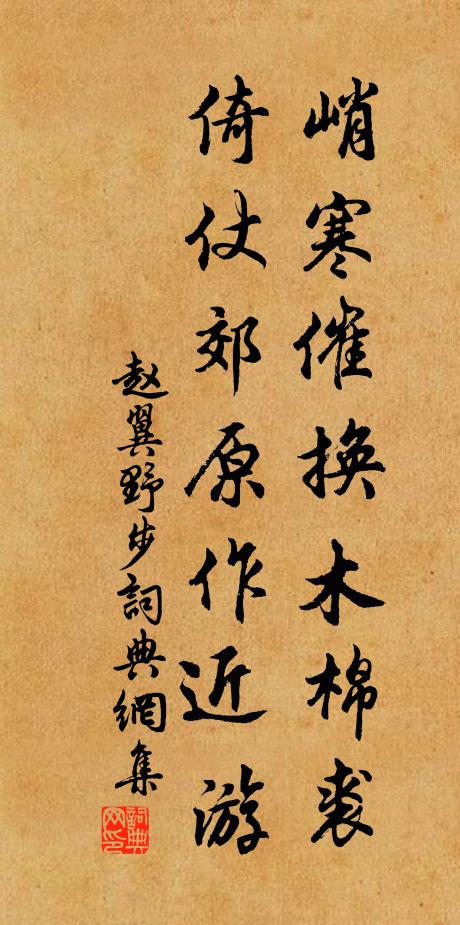 峭寒催换木棉裘
倚仗郊原作近游
赵翼野步詞典網集
詞典网印